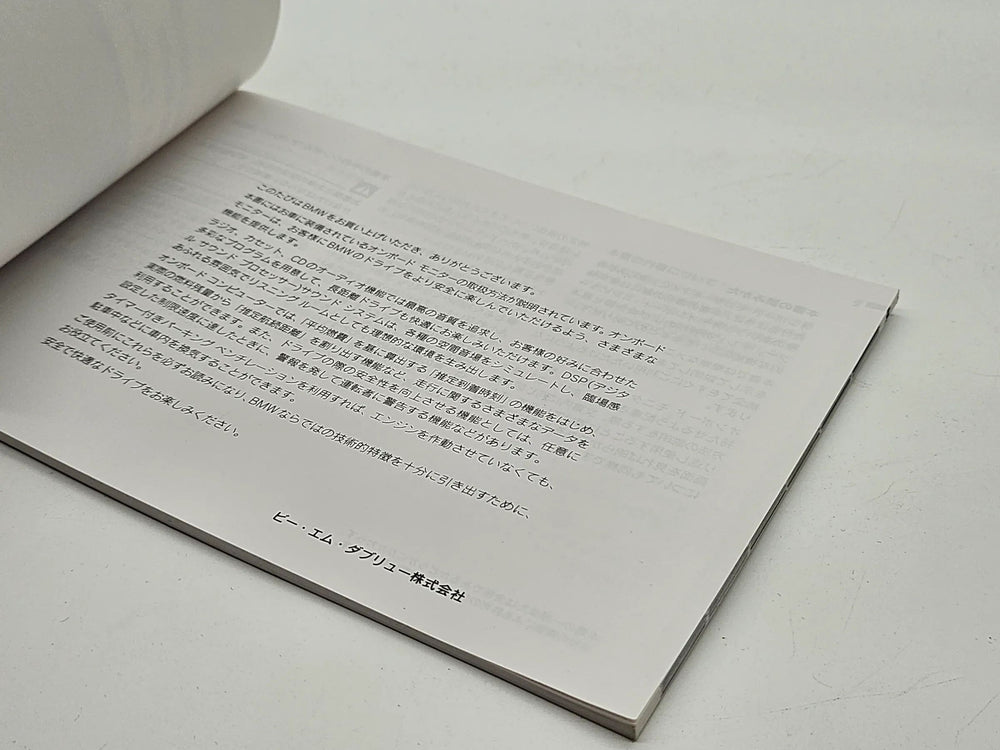 このたびはBMWをお買い上げいただき、ありがとうございます。
本書にはお車に装備されているオンボード モニターの取扱方法が説明されています。オンボード
モニターは、お客様にBMWのドライブをより安全に楽しんでいただけるよう、さまざまな
機能を提供します。
ラジオ、カセット、CDのオーディオ機能では最高の音質を追求し、お客様の好みに合わせた
多彩なプログラムを用意して、長距離ドライブも快適にお楽しみいただけます。DSP(デジタ
ル サウンド プロセッサー)サウンド システムは、各種の空間音場をシミュレートし、臨場感
あふれる雰囲気でリスニング ルームとしても理想的な環境を生み出します。
オンボード コンピューターでは、「平均燃費」を基に算出する「推定到着時刻」の機能をはじめ、
実際の燃料残量から「推定航続距離」を割り出す機能など、走行に関するさまざまなデータを
利用することができます。また、ドライブの際の安全性を向上させる機能としては、任意に
設定した制限速度に達したときに、警報を発して運転者に警告する機能などがあります。
タイマー付きパーキング ベンチレーションを利用すれば、エンジンを作動させていなくても、
駐車中などに車内を換気することができます。
ご使用前にこれらを必ずお読みになり、BMWならではの技術的特徴を十分に引き出すために、
お役立てください。
安全で快適なドライブをお楽しみください。
ビー・エム・ダブリュー株式会社